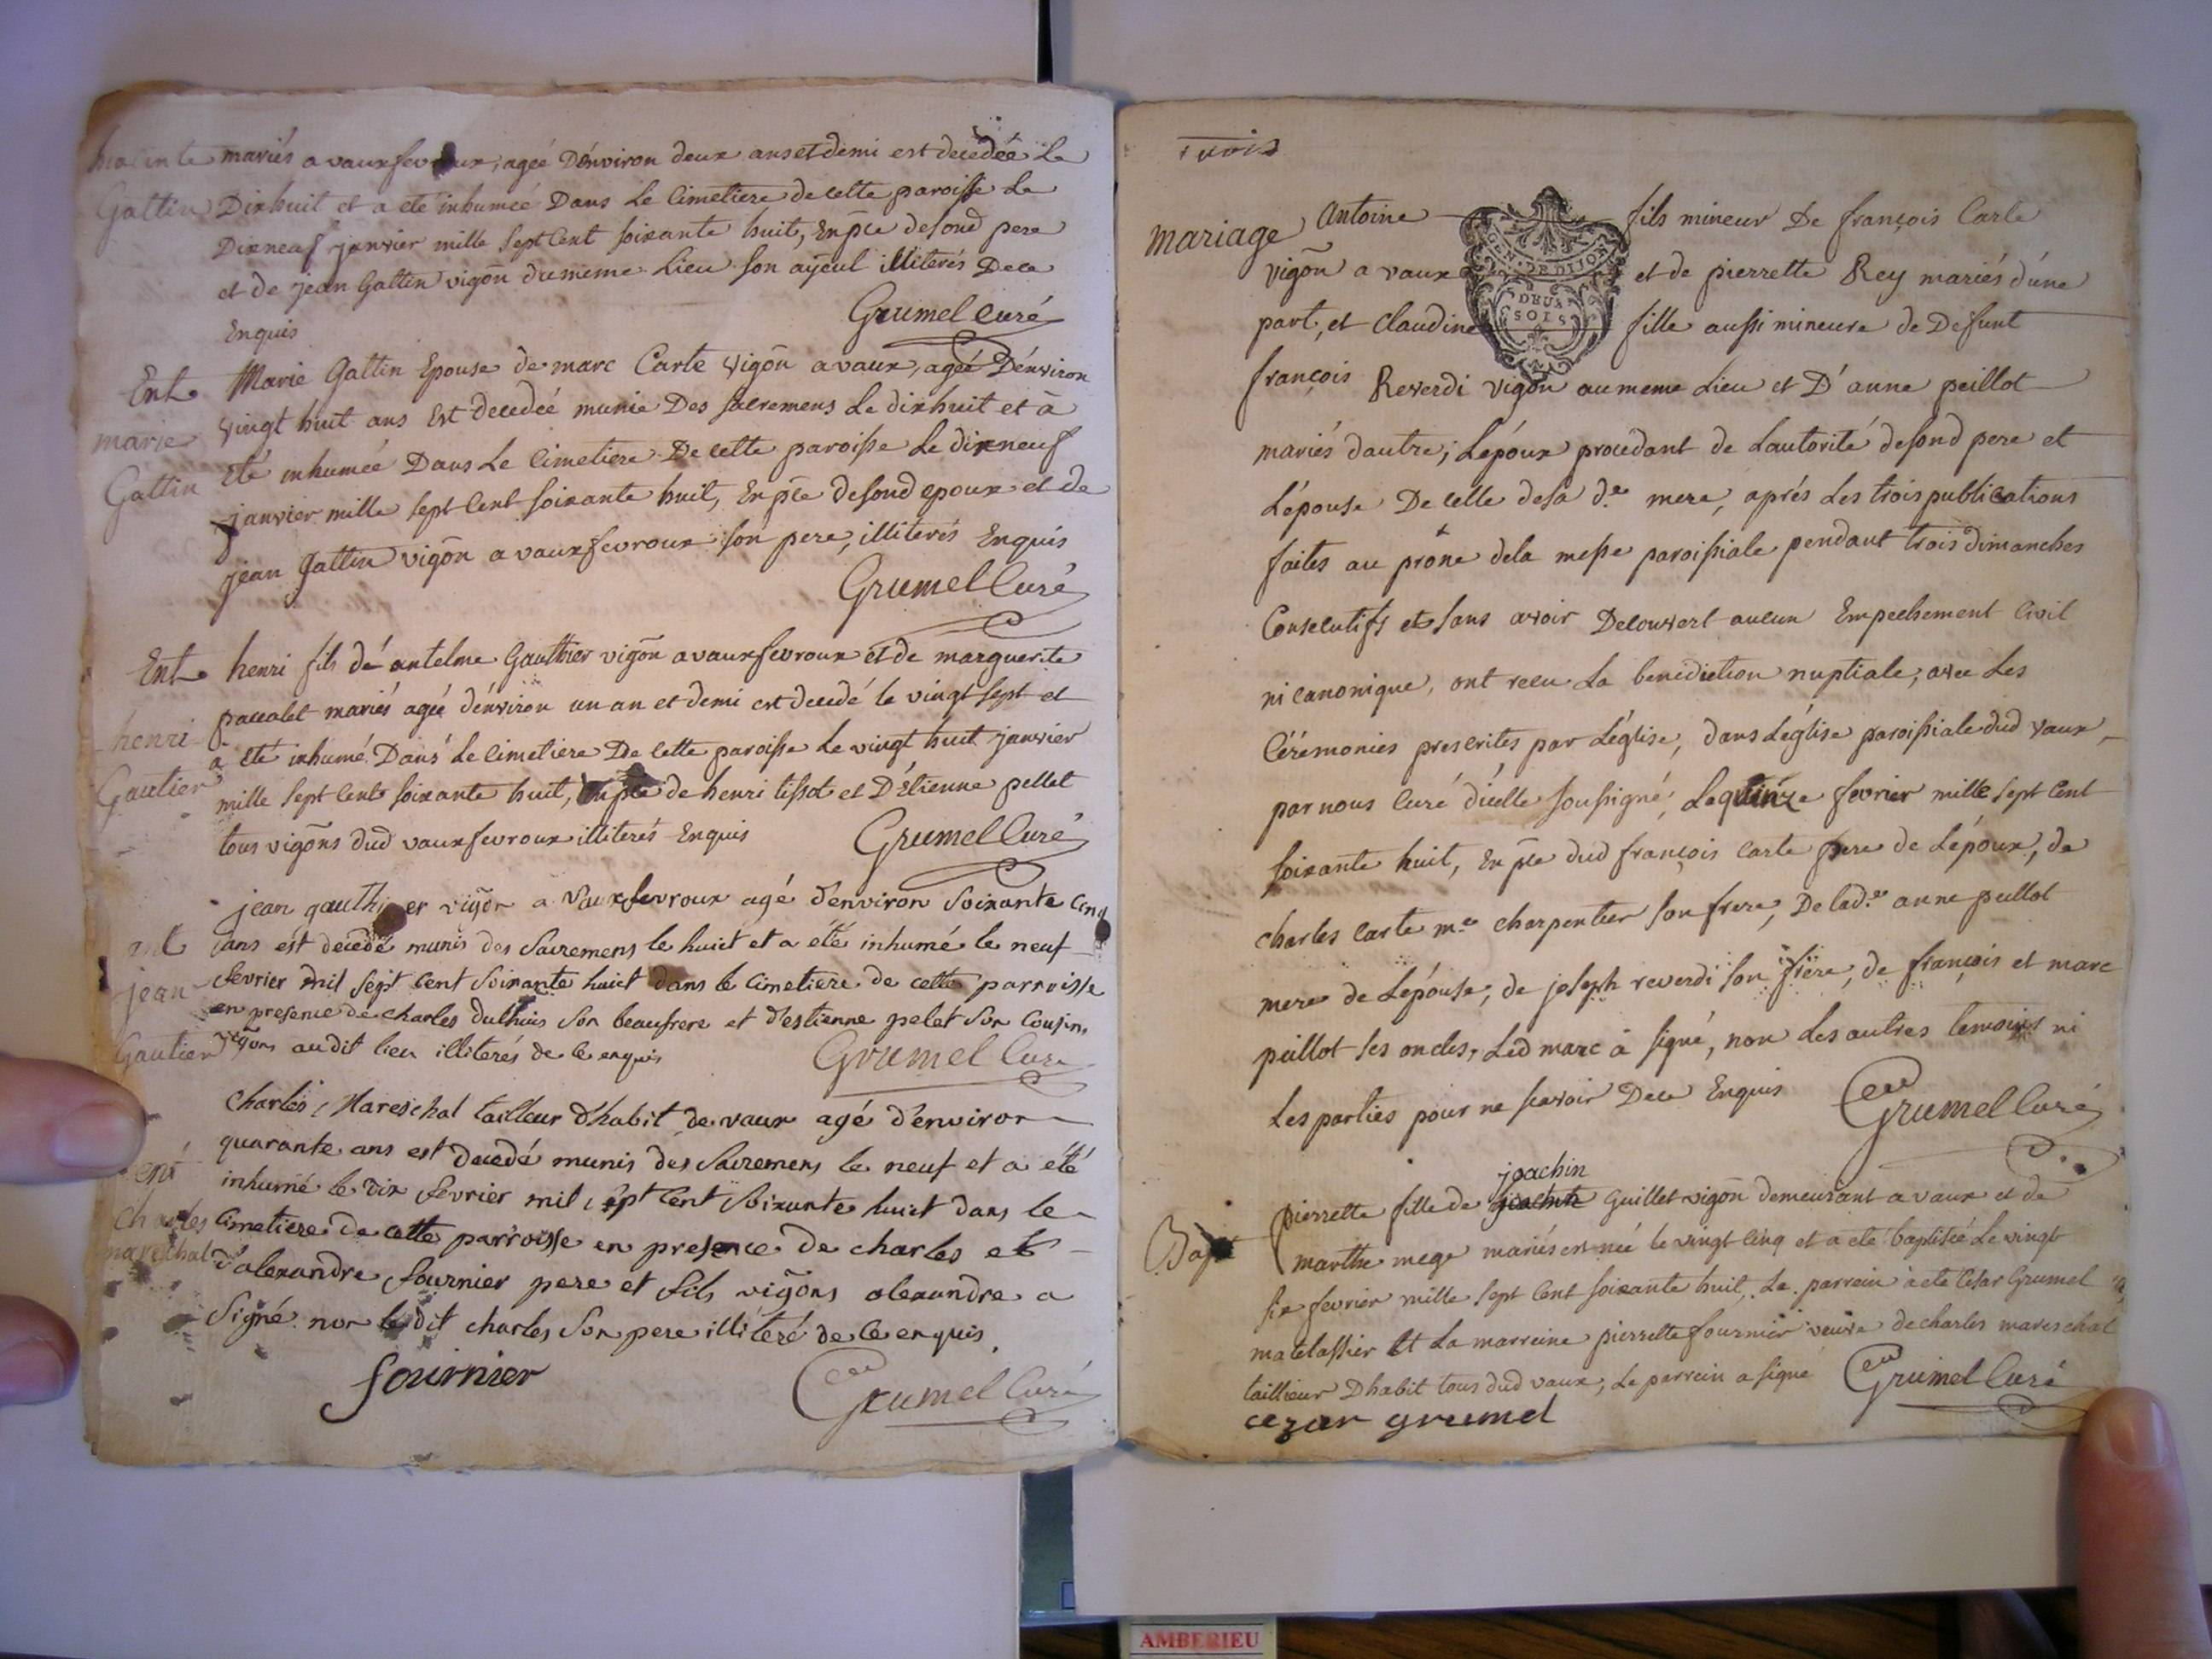 mariés a vauxfevroux, ageé D'environ deux ans et demi est decedeé Le
Gattin Dixhuit et a eté inhumeé Dans Le Cimetiere de cette paroisse Le
Dixneuf janvier mille sept Cent soixante huit, En pce desond pere
et de jean Gattin vigõn dumeme Lieu son ayeul illiterés Dece
Enquis Grumel curé
Ent. Marie Gattin Epouse de marc Carte vigõn a vaux, ageé D'environ
vingt huit ans Est decedeé munie Des sacremens Le dixhuit et à
marie Eté inhumeé Dans Le Cimetiere De cette paroisse Le dixneuf
Gattin janvier mille sept Cent soixante huit, En pce desond epoux et de
jean Gattin vigõn a vauxfevroux son pere, illiterés Enquis
Grumel Curé
Ent. henri fils de antelme Gauthier vigõn a vauxfevroux et de marguerite
paccalet mariés agée d'environ un an et demi est decedé le vingt sept et
henri a eté inhumé Dans Le Cimetiere De cette paroisse Le vingt huit janvier
Gautier mille sept Cent soixante huit, En pce de henri tissot et D'Etienne pellet
tous vigõns dud vauxfevroux illiterés Enquis Grumel Curé
jean gauthier vigõn a Vauxfevroux agé d'environ Soixante Cinq
ans est decedé munis des Sacremens le huict et a été inhumé le neuf
jean fevrier mil sept cent Soixante huict dans le Cimetiere de cette parroisse
en presence de charles duthuis Son beaufrere et d'estienne pelet Son Cousin,
Gautier vigõns audit lieu illiterés de ce enquis Grumel Curé
Charles Mareschal tailleur d'habit de vaux agé d'environ
quarante ans est decedé munis des Sacremens le neuf et a été
ent inhumé le dix fevrier mil sept Cent Soixante huict dans le
charles Cimetiere de cette parroisse en presence de charles et
mareschal d'alexandre fournier pere et fils vigõns alexandre a
Signé non ledit charles Son pere illiteré de ce enquis.
fournier Grumel Curé
Trois
mariage Antoine fils mineur De françois Carte
vigõn a vaux et de pierrette Rey mariés d'une
part, et Claudine fille aussi mineure de Defunt
GEN. DE DIJON
DEUX
SOLS
françois Reverdi vigõn au meme Lieu et D'anne peillot
mariés dautre; L'époux procedant de Lautorité desond pere et
L'épouse De celle desa de. mere, aprés Les trois publications
faites au prône dela messe paroissiale pendant trois dimanches
Consecutifs et sans avoir Decouvert aucun Empechement Civil
ni canonique, ont recu La benediction nuptiale, avec Les
Cérémonies prescrites par L'église, dans L'église paroissiale dud vaux,
par nous Curé d'icelle soussigné, Le quinze fevrier mille sept Cent
soixante huit, En pce dud françois Carte pere de L'époux, de
charles Carte me charpentier son frere, De lade. anne peillot
mere de L'épouse, de joseph reverdi son frere, de françois et marc
peillot ses oncles, Led marc à signé, non Les autres temoins ni
Les parties pour ne scavoir Dece Enquis Grumel Curé
joachin
Bapt pierrette fille de Guillet vigõn demeurant a vaux et de
marthe mege mariés est née le vingt cinq et a eté baptiseé Le vingt
six fevrier mille sept Cent soixante huit, Le parrein a eté César Grumel
matelassier Et La marreine pierrette fournier veuve de charles mareschal
tailleur Dhabit tous dud vaux; Le parrein a signé Grumel Curé
cezar grumel
AMBERIEU